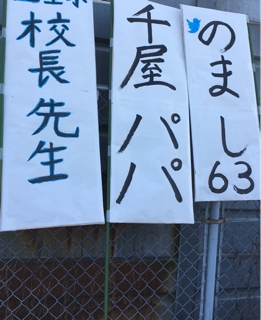 のまし63
千屋パパ
校長先生